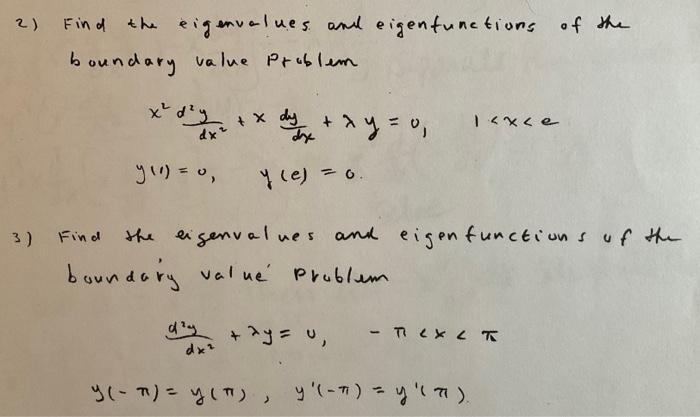 2) Find the eigenvalues and eigenfunctions of the
boundary value Problem
x² d²y/dx² + x dy/dx + λy = 0, 1<x<e
y(1) = 0, y(e) = 0.
3) Find the eigenvalues and eigenfunctions of the
boundary value Problem
d²y/dx² + λy = 0, -π < x < π
y(-π) = y(π), y'(-π) = y'(π).